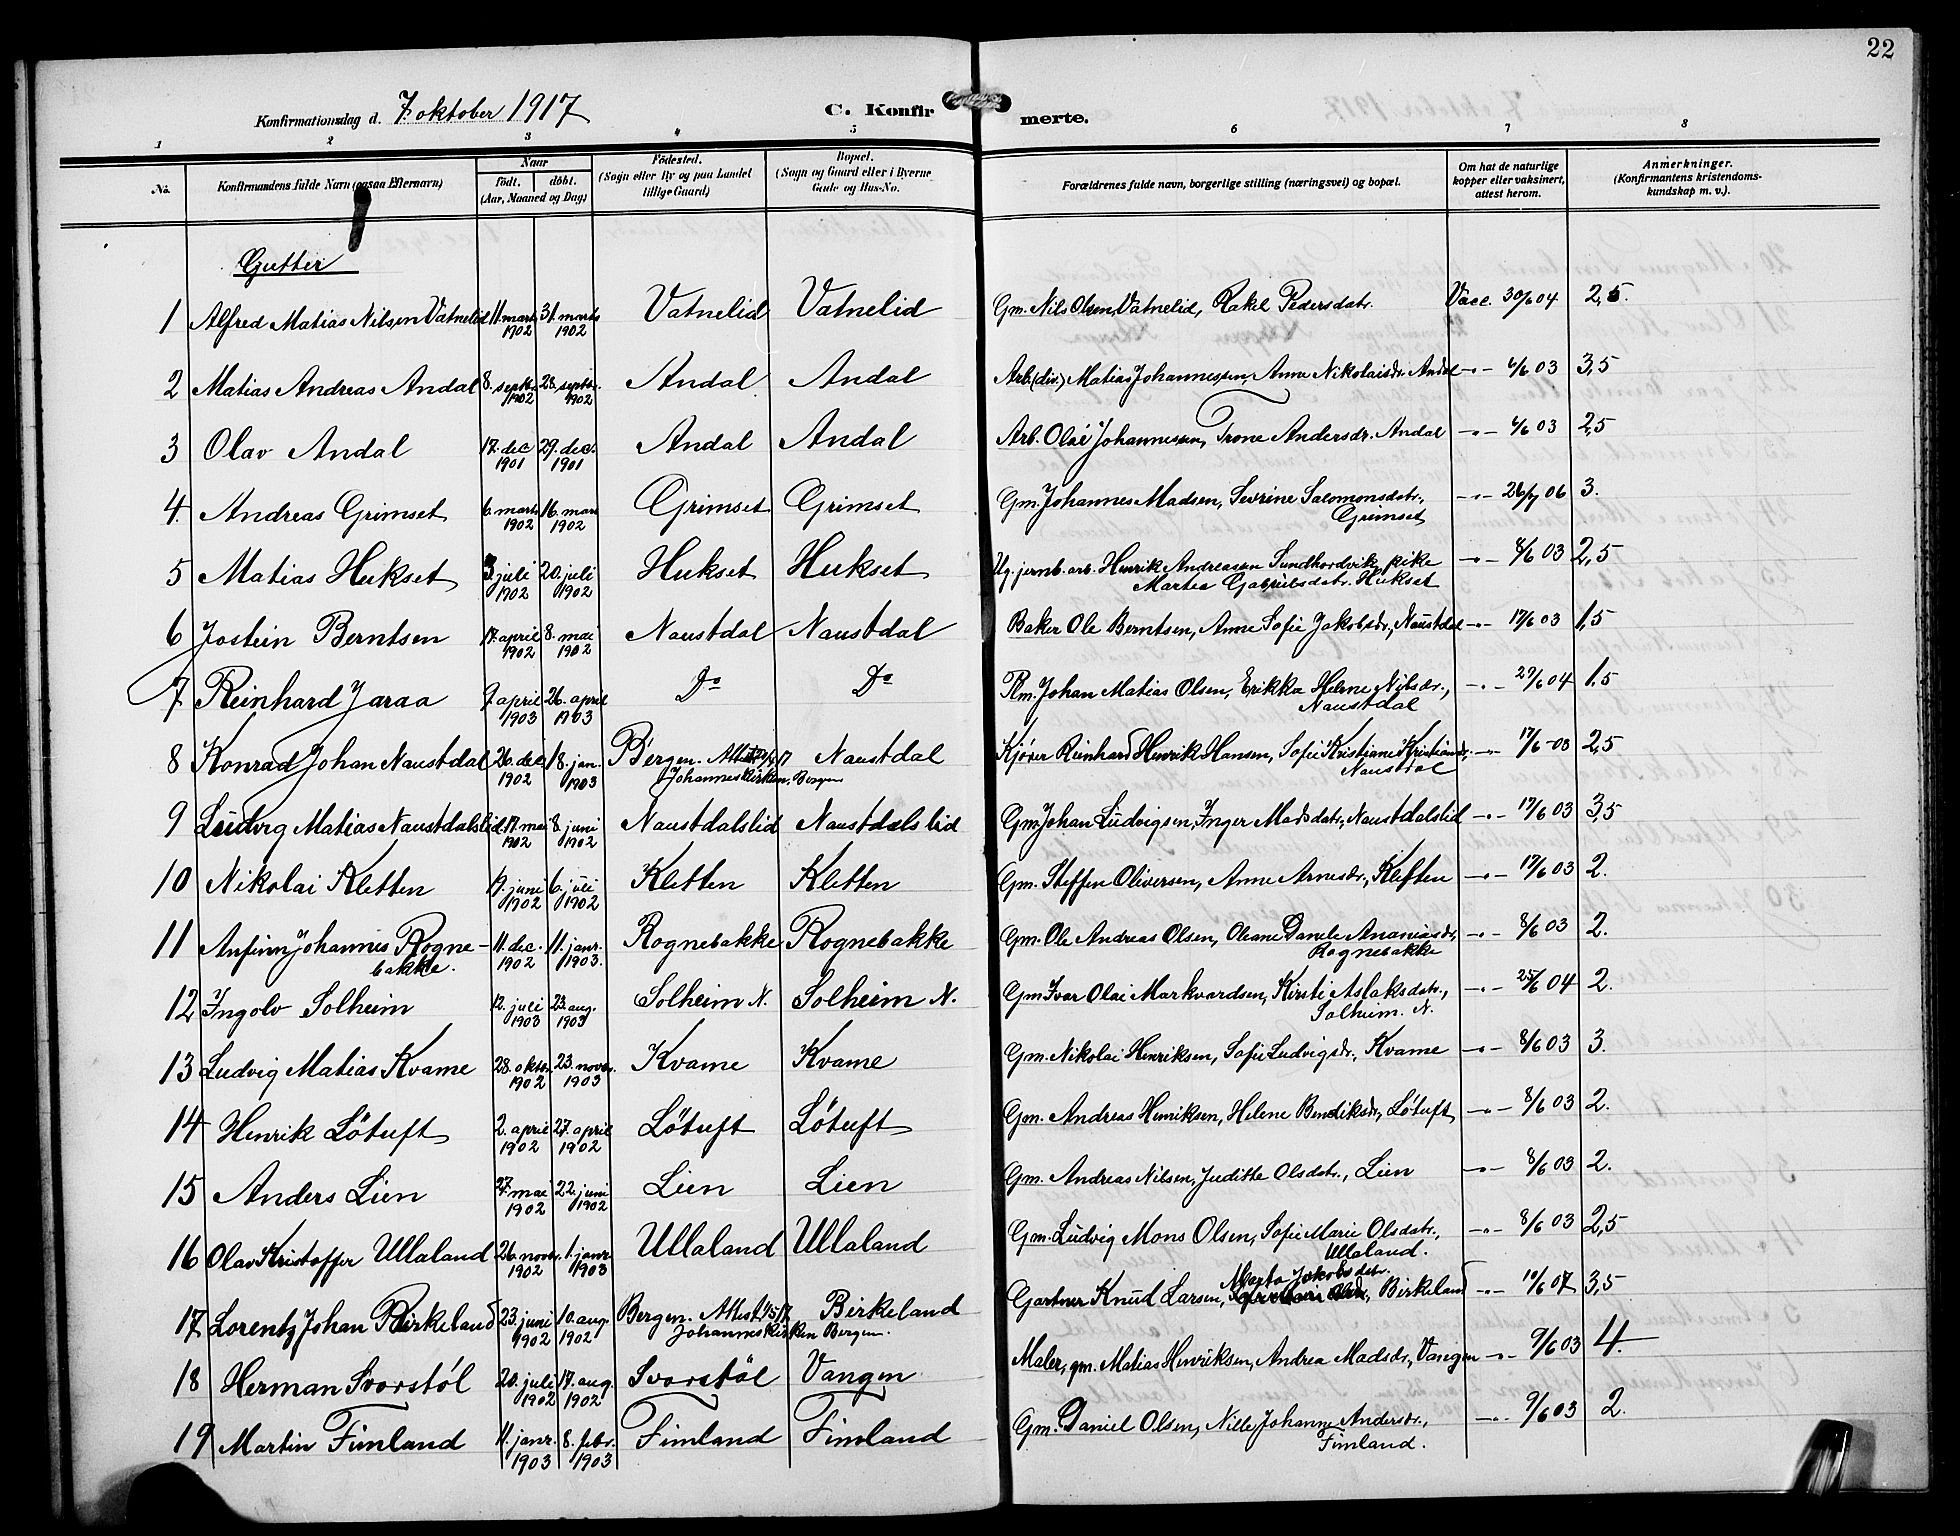 22
Konfirmationsdag d. 7. oktober 1917 C. Konfirmerte.
1 2 3 4 5 6 7 8
No. Konfirmandens fulde Navn (ogsaa Efternavn) Naar født. døbt. (Aar, Maaned og Dag) Fødested. (Sogn eller By og paa Landet tillige Gaard) Bopæl. (Sogn og Gaard eller i Byerne Gade og Hus-No. Forældrenes fulde navn, borgerlige stilling (næringsvei) og bopæl. Om hat de naturlige kopper eller vaksinert, attest herom. Anmerkninger. (Konfirmantens kristendoms-kundskap m. v.).
Gutter
1 Alfred Matias Nilsen Vatnelid 11. marts 1902 31. marts 1902 Vatnelid Vatnelid Gm. Nils Olsen Vatnelid, Rakel Pedersdatr. Vacc. 30/6 04 2,5.
2 Matias Andreas Andal 8. septbr. 1902 28. septbr. 1902 Andal Andal Arb. (div.) Matias Johannessen, Anne Nikolaisdr. Andal -"- 6/6 03 3,5
3 Olav Andal 17. dec 1901 29. dec. 1901 Andal Andal Arb. Olai Johannessen, Trone Andersdr. Andal -"- 6/6 03 2,5
4. Andreas Grimset 6. marts 1902 16. mars 1902 Grimset Grimset Gm. Johannes Madsen, Sevrine Salomonsdatr., Grimset -"- 26/7 06 3.
5 Matias Hukset 3. juli 1902 20. juli 1902 Hukset Hukset Ug. jernb. arb. Henrik Andreassen Sundhordvik, pike Martea Gabrielsdatr. Hukset -"- 8/6 03 2,5
6 Jostein Berntsen 17. april 1902 8. mai 1902 Naustdal Naustdal Baker Ole Berntsen, Anne Sofie Jakobsdr., Naustdal -"- 17/6 03 1,5
7 Reinhard Jaraa 7 april 1903 26. april 1903 Do Do Rm. Johan Matias Olsen, Erikka Helene Nilsdr., Naustdal -"- 29/6 04 1.5
8 Konrad Johan Naustdal 20. dec. 1902 18. jan. 1903 Bergen. Attest Johanneskirken, Bergen Naustdal Kjører Reinhard Henrik Hansen, Sofie Kristiane Kristiansdr., Naustdal -"- 17/6-03 2,5
9 Ludvig Matias Naustdalslid 17. mai 1902 8. juni 1902 Naustdalslid Naustdalslid Gm. Johan Ludvigsen, Inger Madsdatr., Naustdalslid -"- 17/6 03 3,5
10 Nikolai Kletten 19. juni 1902 6. juli 1902 Kletten Kletten Gm. Steffen Oliversen, Anne Arnesdr., Kleften -"- 17/6 03 2.
11 Anfinn Johannes Rognebakke. 11. dec. 1902 11. janr. 1903. Rognebakke Rognebakke Gm. Ole Andreas Olsen, Oleane Danele Ananiasdr., Rognebakke -"- 8/6 03 2.
12 Ingolv Solheim 12. juli 1903 23. aug. 1903 Solheim N. Solheim N. Gm Ivar Olai Markvardsen, Kirsti Aslaksdatr., Solheim. N. -"- 25/6 04 2.
13 Ludvig Matias Kvame 28. oktbr. 1902 23. novbr. 1903 Kvame Kvame Gm. Nikolai Henriksen, Sofie Ludvigsdr., Kvame -"- 8/6 03 3.
14 Henrik Løtuft 2. april 1902 27. april 1902 Løtuft Løtuft Gm. Andreas Henriksen, Helene Bendiksdr., Løtuft -"- 8/6 03 2.
15 Anders Lien 27. mai 1902 22. juni 1902 Lien Lien Gm. Andreas Nilsen, Juditte Olsdatr., Lien -"- 8/6 03 2.
16 Olav Kristoffer Ullaland 26. novbr. 1902 1. janr. 1903 Ullaland Ullaland Gm. Ludvig Mons Olsen, Sofie Marie Olsdatr., Ullaland. -"- 8/6 03 2,5
17 Lorentz Johan Birkeland 23. juni 1902 10. aug. 1902 Bergen. Attest Johanneskirken Bergen. Birkeland Gartner Knud Larsen, Marta Jakobsdatr. Birkeland -"- 19/6 07 3,5
18 Herman Svorstøl 20. juli 1902 17. aug. 1902 Svorstøl Vangen Maler, gm. Matias Henriksen, Andrea Madsdr., Vangen -"- 9/6 03 4.
19 Martin Fimland 11. janr. 1903 8. febr. 1903 Fimland Fimland Gm. Daniel Olsen, Nille Johanne Andersdr., Fimland. -"- 9/6 03 2.